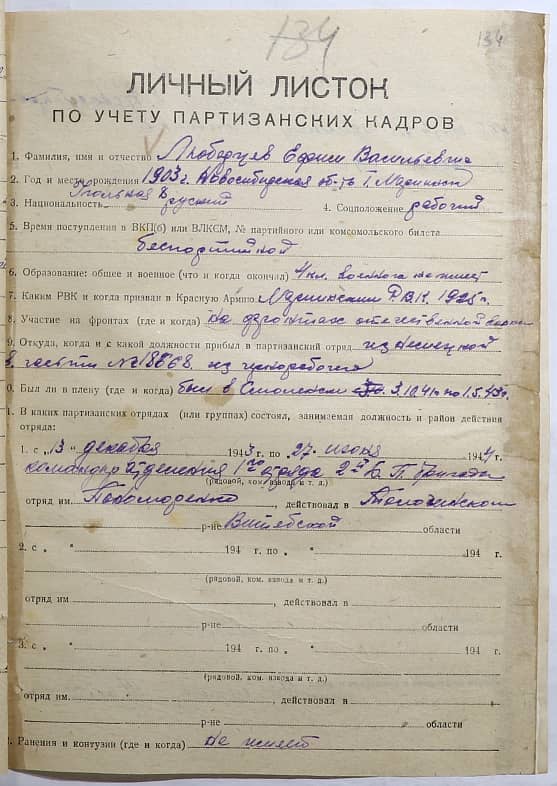 134
134
ЛИЧНЫЙ ЛИСТОК
ПО УЧЕТУ ПАРТИЗАНСКИХ КАДРОВ
1. Фамилия, имя и отчество Ефрем Васильевич
2. Год и место рождения 1903 г. Новосибирская об-ть г. Мариинск
Угольная 8
3. Национальность русский 4. Соцположение рабочий
5. Время поступления в ВКП(б) или ВЛКСМ, № партийного или комсомольского билета
беспартийной
6. Образование: общее и военное (что и когда окончил) 4 кл. военного не имеет
7. Каким РВК и когда призван в Красную Армию Мариинским РВК. 1925 г.
8. Участие на фронтах (где и когда) на фронтах отечественной
9. Откуда, когда и с какой должности прибыл в партизанский отряд из немецкой
части № 18868. из
0. Был ли в плену (где и когда) был в Смоленске 3.10.41 по 1.5.43 г.
1. В каких партизанских отрядах (или группах) состоял, занимаемая должность и район действия
отряда:
1. с „ 13 " декабря 1943 г. по „ 27 " июня 1944 г.
командир отделения 1го отряда 2й Б. П. бригады
(рядовой, ком. взвода и т. д.)
отряд им. Пономаренко, действовал в Толочинском
р-не Витебской области
2. с „ " 194 г. по „ " 194 г.
(рядовой, ком. взвода и т. д.)
отряд им , действовал в
р-не области
3. с „ " 194 г. по „ " 194 г.
(рядовой, ком. взвода и т. д.)
отряд им. , действовал в
р-не области
. Ранения и контузии (где и когда) не имеет